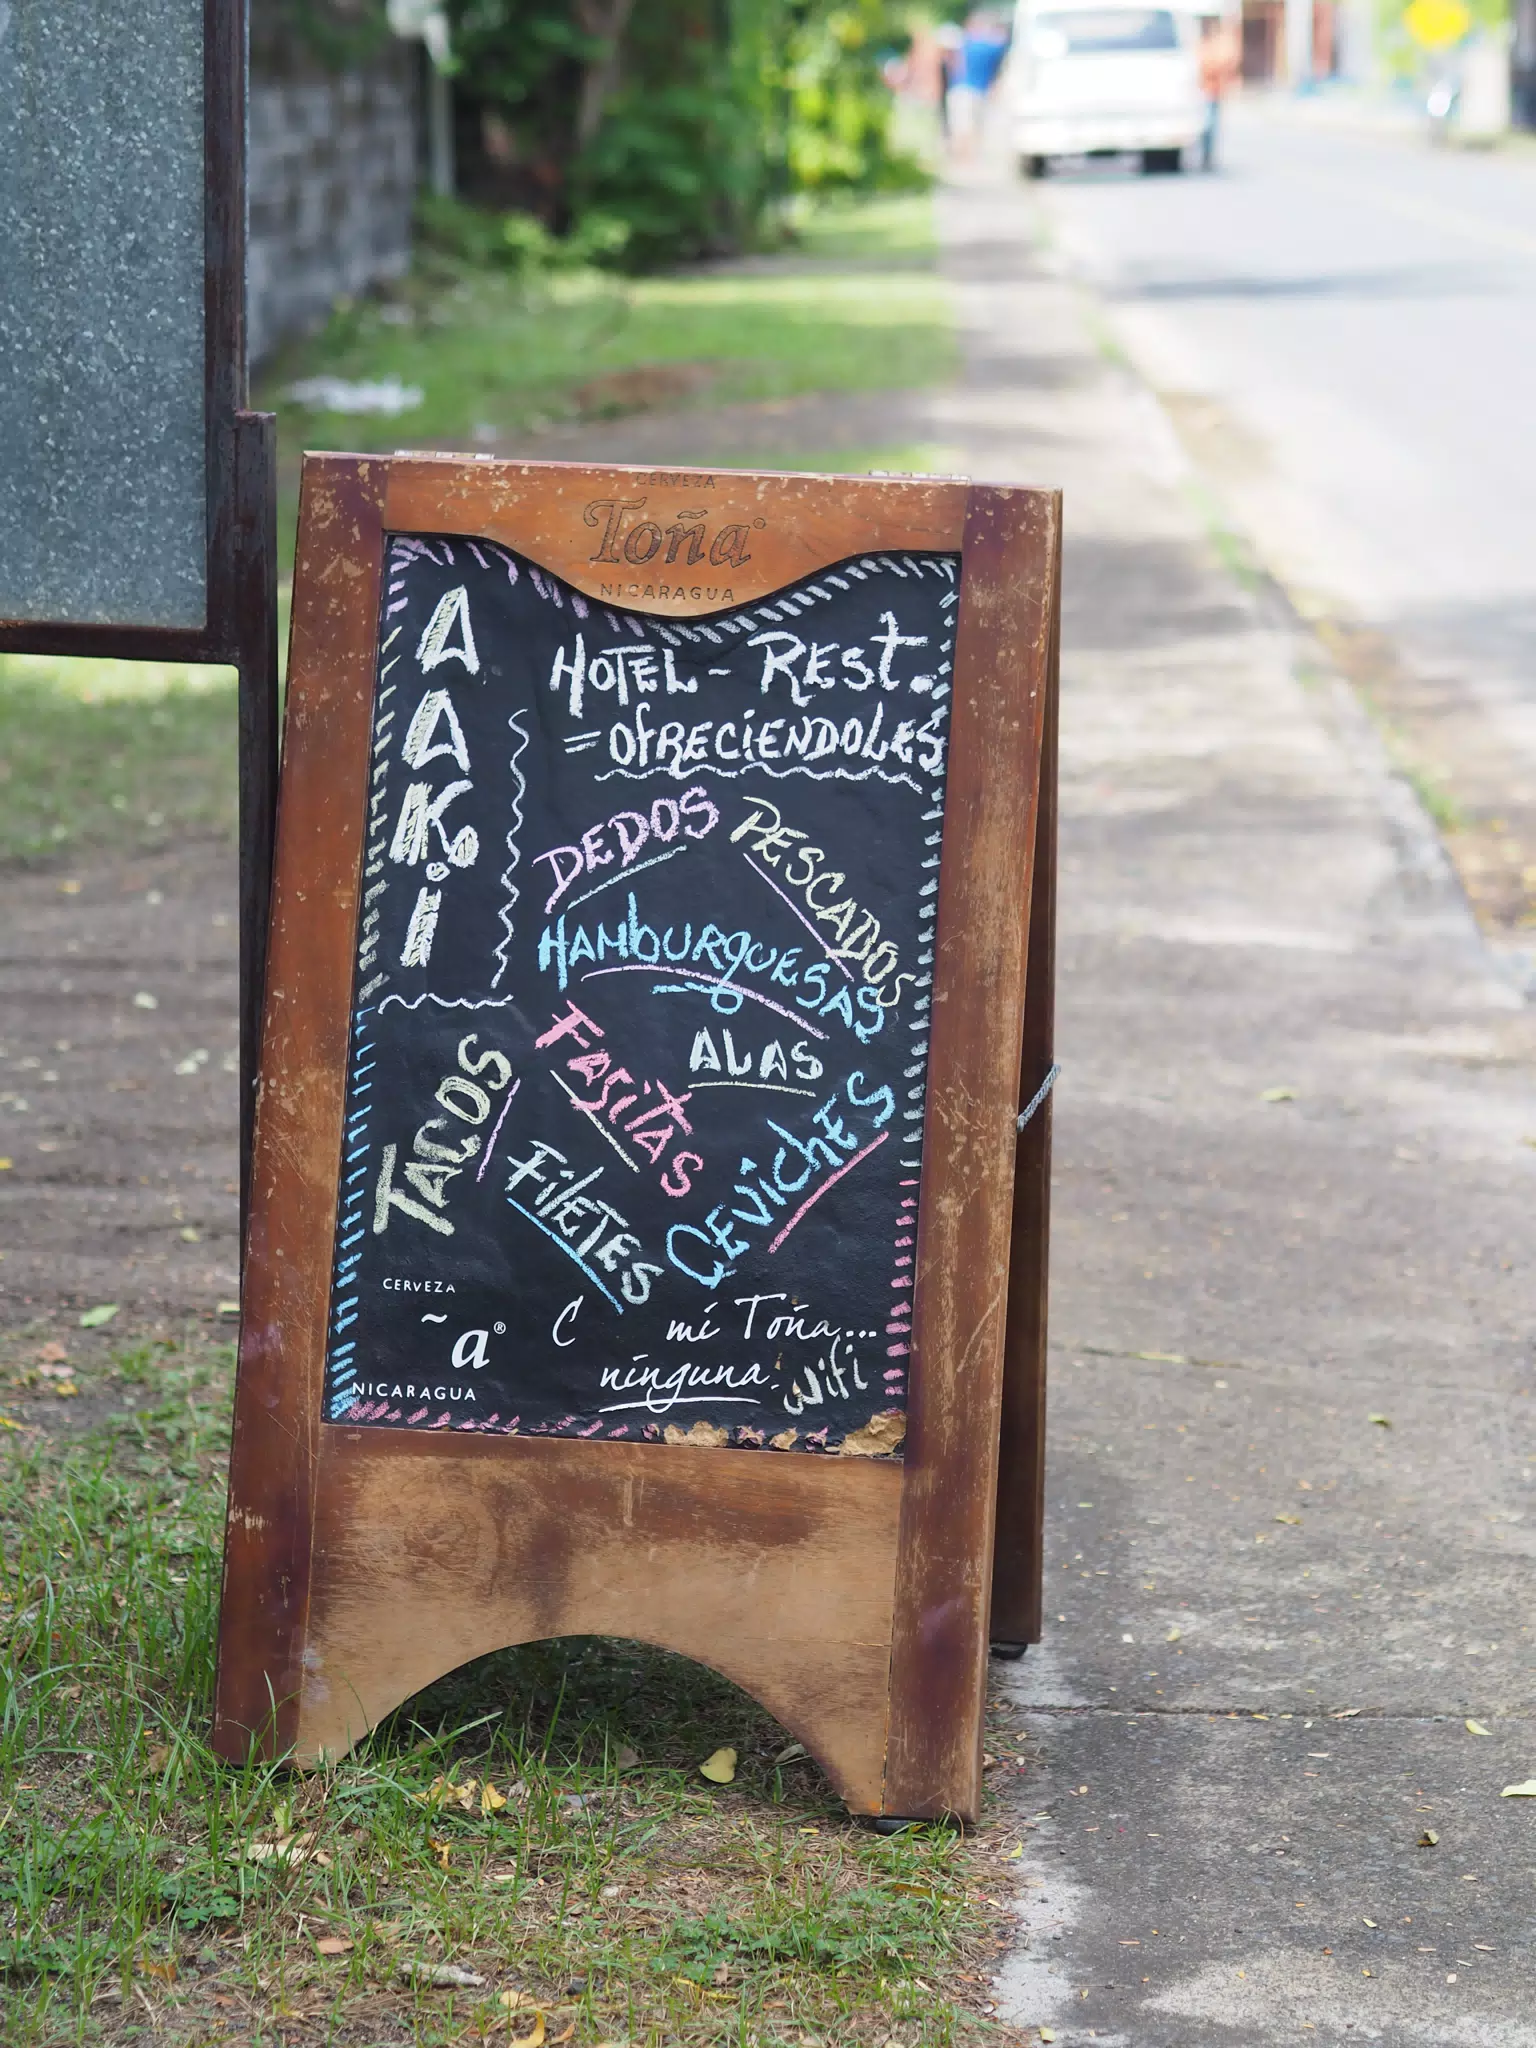 CERVEZA
Toña
NICARAGUA
AAKi
HOTEL - REST.
= OFRECIENDOLES
DEDOS
PESCADOS
HAMBURGUESAS
ALAS
FASITAS
TACOS
FILETES
CEVICHES
CERVEZA
~a®
NICARAGUA
C mi Toña...
ninguna.
Wifi